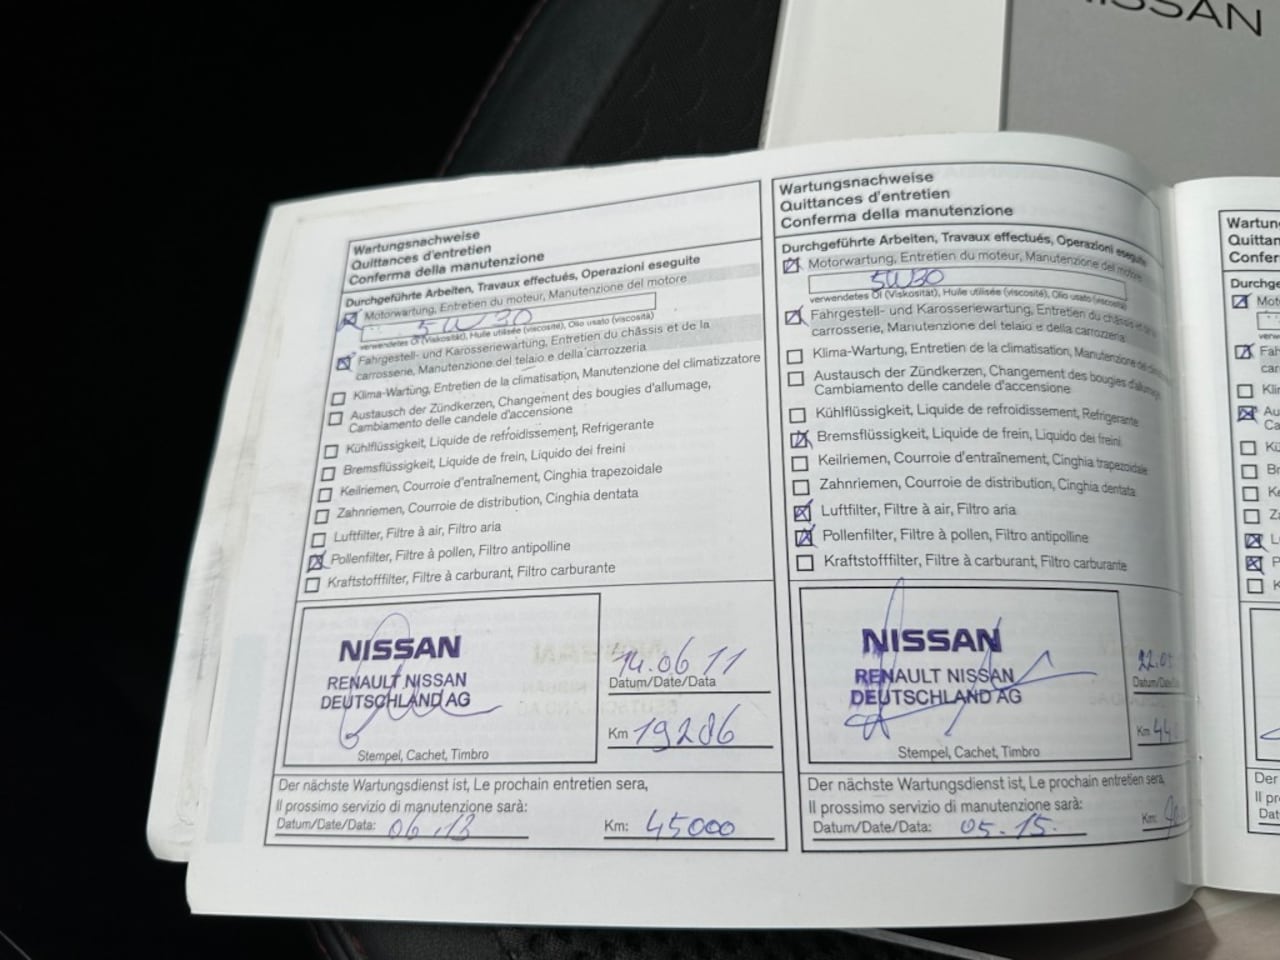 NISSAN
Wartungsnachweise
Quittances d'entretien
Conferma della manutenzione
Durchgeführte Arbeiten, Travaux effectués, Operazioni eseguite
Motorwartung, Entretien du moteur, Manutenzione del motore
5W30
verwendetes Öl (Viskosität), Huile utilisée (viscosité), Olio usato (viscosità)
Fahrgestell- und Karosseriewartung, Entretien du châssis et de la
carrosserie, Manutenzione del telaio e della carrozzeria
Klima-Wartung, Entretien de la climatisation, Manutenzione del climatizzatore
Austausch der Zündkerzen, Changement des bougies d'allumage,
Cambiamento delle candele d'accensione
Kühlflüssigkeit, Liquide de refroidissement, Refrigerante
Bremsflüssigkeit, Liquide de frein, Liquido dei freini
Keilriemen, Courroie d'entraînement, Cinghia trapezoidale
Zahnriemen, Courroie de distribution, Cinghia dentata
Luftfilter, Filtre à air, Filtro aria
Pollenfilter, Filtre à pollen, Filtro antipolline
Kraftstofffilter, Filtre à carburant, Filtro carburante
NISSAN
RENAULT NISSAN
DEUTSCHLAND AG
Stempel, Cachet, Timbro
14.06 11
Datum/Date/Data
Km 19286
Der nächste Wartungsdienst ist, Le prochain entretien sera,
Il prossimo servizio di manutenzione sarà:
Datum/Date/Data: 06.13
Km: 45000
Wartungsnachweise
Quittances d'entretien
Conferma della manutenzione
Durchgeführte Arbeiten, Travaux effectués, Operazioni eseguite
Motorwartung, Entretien du moteur, Manutenzione del motore
5W30
verwendetes Öl (Viskosität), Huile utilisée (viscosité), Olio usato (viscosità)
Fahrgestell- und Karosseriewartung, Entretien du châssis et de la
carrosserie, Manutenzione del telaio e della carrozzeria
Klima-Wartung, Entretien de la climatisation, Manutenzione del
Austausch der Zündkerzen, Changement des bougies d'allumage,
Cambiamento delle candele d'accensione
Kühlflüssigkeit, Liquide de refroidissement, Refrigerante
Bremsflüssigkeit, Liquide de frein, Liquido dei freini
Keilriemen, Courroie d'entraînement, Cinghia trapezoidale
Zahnriemen, Courroie de distribution, Cinghia dentata
Luftfilter, Filtre à air, Filtro aria
Pollenfilter, Filtre à pollen, Filtro antipolline
Kraftstofffilter, Filtre à carburant, Filtro carburante
NISSAN
RENAULT NISSAN
DEUTSCHLAND AG
Stempel, Cachet, Timbro
22.05
Datum/Date
Km 44
Der nächste Wartungsdienst ist, Le prochain entretien sera,
Il prossimo servizio di manutenzione sarà:
Datum/Date/Data: 05.15.
Km:
Wartun
Quittan
Confer
Durchge
Der